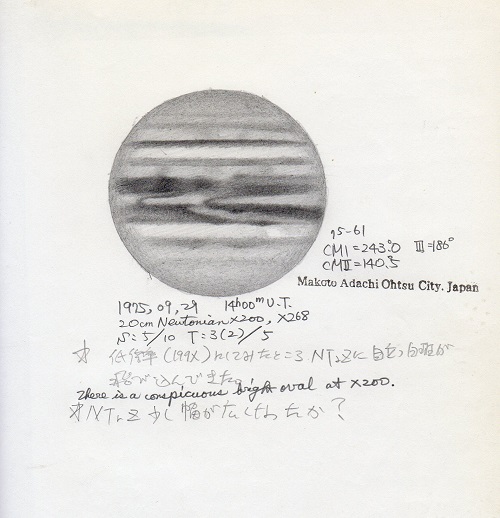 75-61
CMI=243°.0 III=186°
CMII=140°.5
Makoto Adachi Ohtsu City. Japan
1975, 09, 29 14h00m U.T.
20cm Newtonian ×200, ×268
S=5/10 T=3(2)/5
☆ 低倍率(199X)にてみたところ NTrZに 白斑が
込んできた。
There is a conspicuous bright oval at ×200.
☆ NTrZ 少し幅が広くなったか?